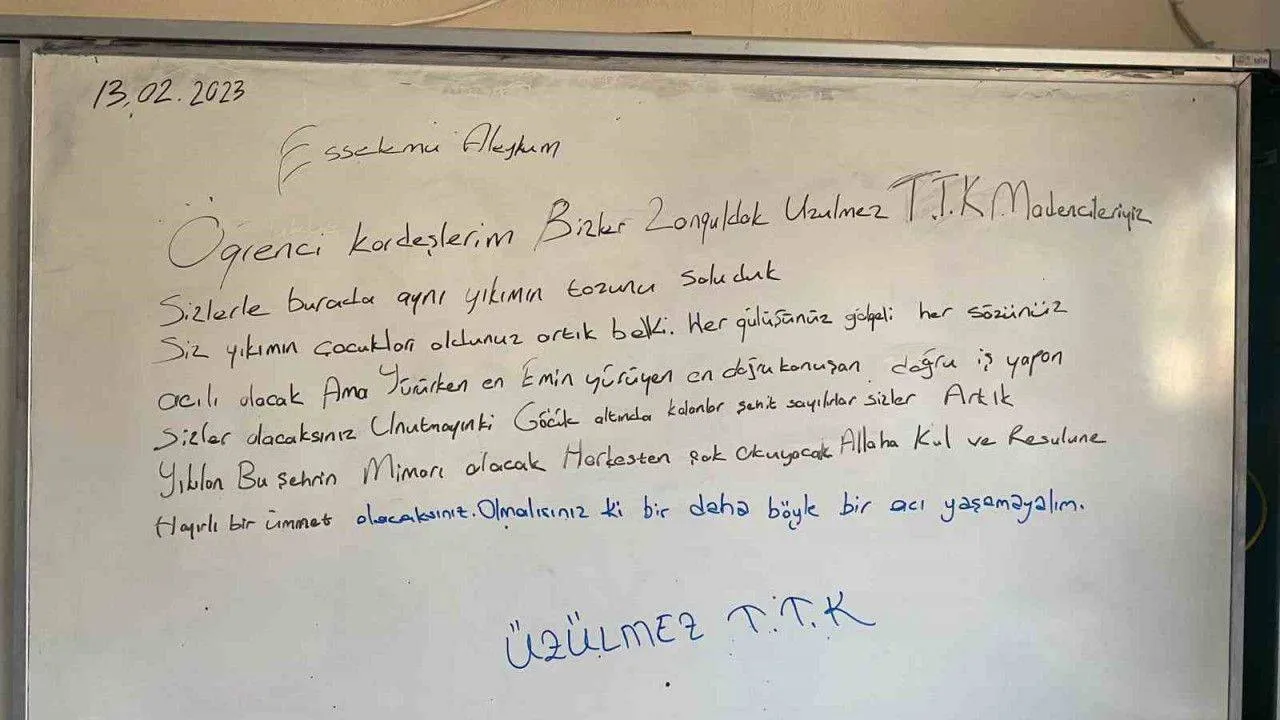 13.02.2023
Esselemü Aleykum
Öğrenci kardeşlerim Bizler Zonguldak Uzulmez T.T.K Madencileriyiz
Sizlerle burada aynı yıkımın tozunu soluduk
Siz yıkımın çocukları oldunuz artık belki. Her gülüşünüz gölgeli her sözünüz
acılı olacak Ama Yürürken en Emin yürüyen en doğru konuşan doğru iş yapan
Sizler olacaksınız Unutmayınki Göçük altında kalanlar şehit sayılırlar sizler Artık
Yıkılan Bu şehrin Mimarı olacak Herkesten çok okuyacak Allaha Kul ve Resulune
Hayırlı bir ümmet olacaksınız. Olmalısınız ki bir daha böyle bir acı yaşamayalım.
ÜZÜLMEZ T.T.K